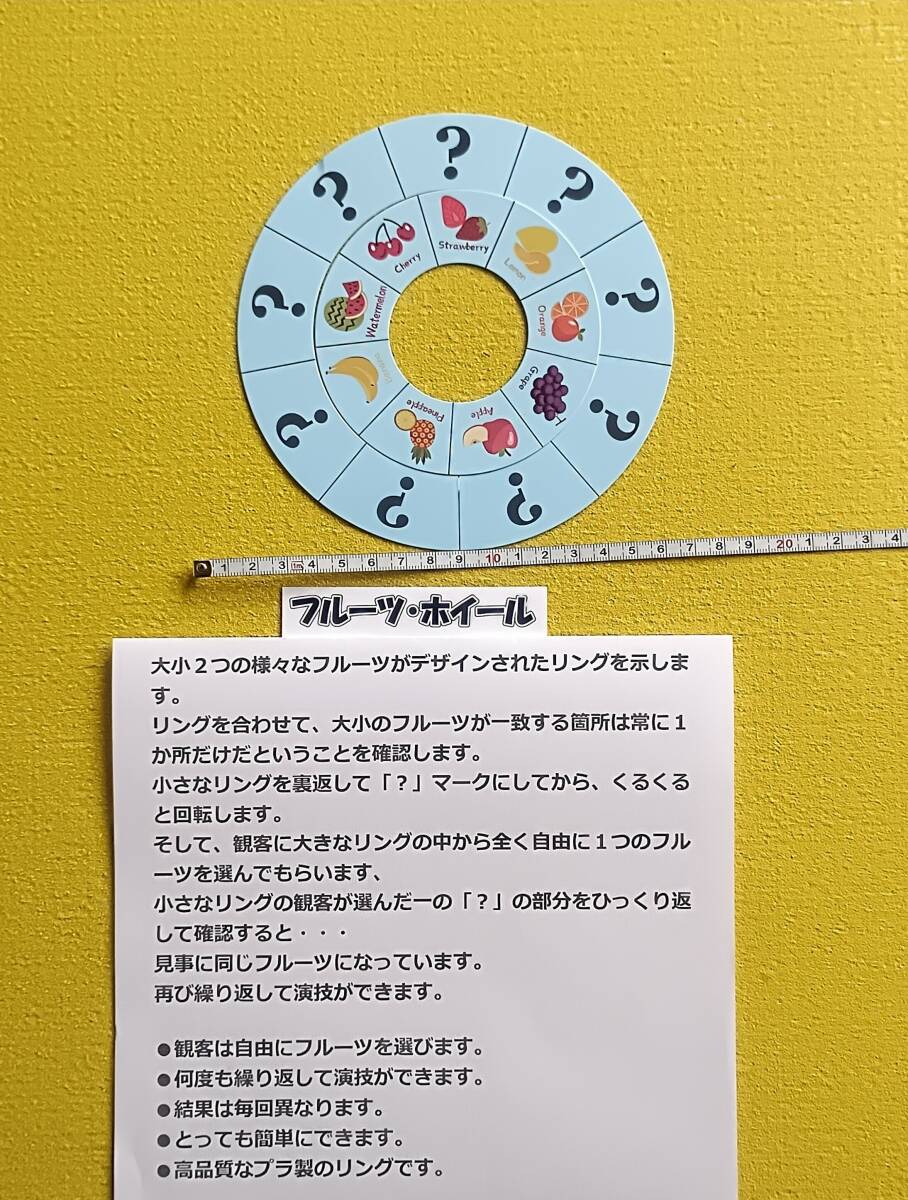 ?
?
?
?
?
?
?
?
?
Strawberry
Lemon
Orange
Grape
Apple
Pineapple
Banana
Watermelon
Cherry
1 2 3 1m 4 5 6 7 8 9 10 1 2 3 4 5 6 7 8 9 20 1 2 3 4
フルーツ・ホイール
大小２つの様々なフルーツがデザインされたリングを示しま
す。
リングを合わせて、大小のフルーツが一致する箇所は常に１
か所だけだということを確認します。
小さなリングを裏返して「？」マークにしてから、くるくる
と回転します。
そして、観客に大きなリングの中から全く自由に１つのフル
ーツを選んでもらいます、
小さなリングの観客が選んだ一の「？」の部分をひっくり返
して確認すると・・・
見事に同じフルーツになっています。
再び繰り返して演技ができます。
●観客は自由にフルーツを選びます。
●何度も繰り返して演技ができます。
●結果は毎回異なります。
●とっても簡単にできます。
●高品質なプラ製のリングです。